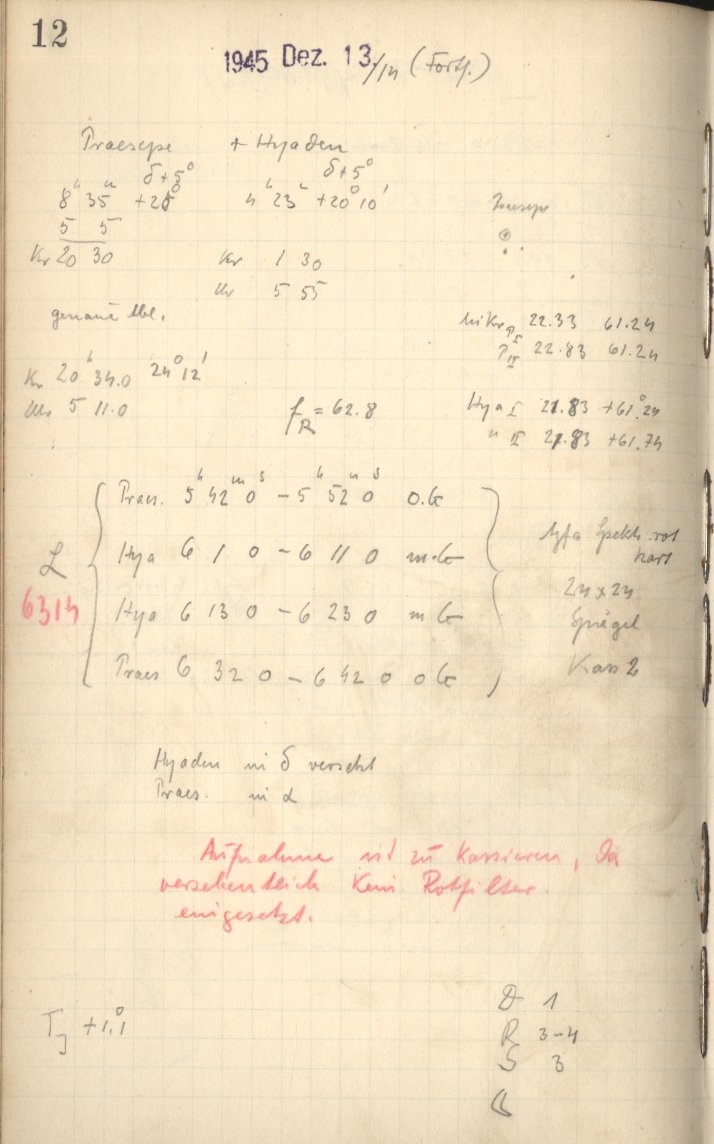 12
1945 Dez. 13./14 (Forts.)
Praesepe + Hyaden
δ+5° δ+5°
8h 35m +20° 4h 23m +20° 10'
5 5
Kr 20 30 Kr 1 30
Ur 5 55
Praesepe
genaue
Kr 20h 34.0 24° 12'
Ur 5 11.0
fR = 62.8
MiKr PI 22.33 61.24
PII 22.83 61.24
Hya I 21.83 +61.°24
" II 21.83 +61.74
L 6314
Praes. 5h 42m 0s – 5h 52m 0s o.G
Hya 6 1 0 – 6 11 0 m.G
Hya 6 13 0 – 6 23 0 m G
Praes 6 32 0 – 6 42 0 o G
Agfa Spektr. rot
hart
24 x 24
Spiegel
Kass 2
Hyaden in δ versetzt
Praes. in α
Aufnahme ist zu kassieren, da
versehentlich kein Rotfilter
eingesetzt.
TJ +1.°1
D 1
R 3-4
S 3